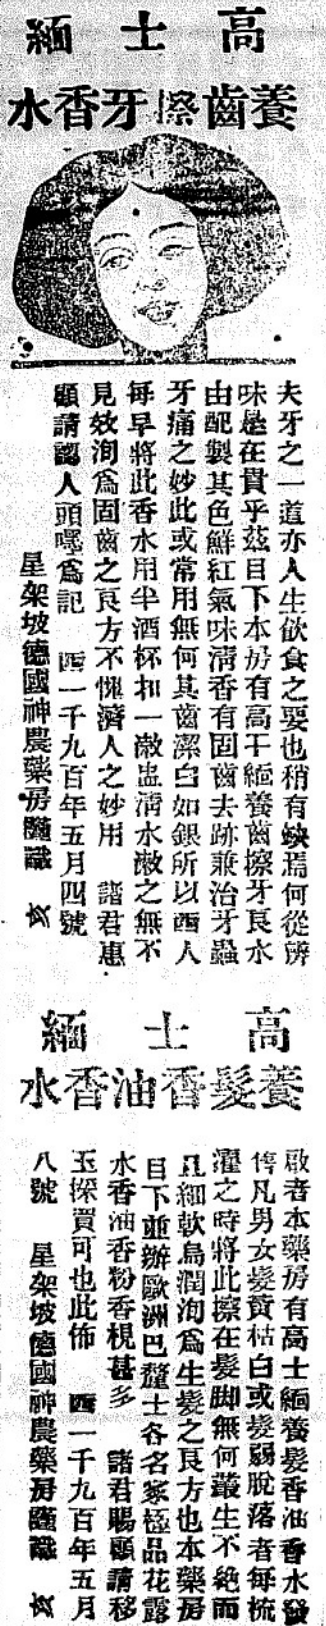 高士緬
養齒擦牙香水
夫牙之一道亦人生飲食之要也稍有缺焉何從辨
味是在貴乎茲目下本房有高士緬養齒擦牙良水
由配製其色鮮紅氣味清香有固齒去跡兼治牙蟲
牙痛之妙此或常用無何其齒潔白如銀所以酉人
每早將此香水用半酒杯扣一漱盅清水漱之無不
見效洵為固齒之良方不愧濟人之妙用 諸君惠
顧請認人頭嘜為記 酉一千九百年五月四號
星架坡德國神農藥房謹識
高士緬
養髮香油香水
啟者本藥房有高士緬養髮香油香水發
售凡男女髮黃枯白或髮弱脫落者每梳
濯之時將此擦在髮脚無何叢生不絕而
且細軟烏潤洵為生髮之良方也本藥房
目下並辦歐洲巴釐士各名家極品花露
水香油香粉香梘甚多 諸君賜顧請移
玉採買可也此佈 酉一千九百年五月
八號 星架坡德國神農藥房謹識